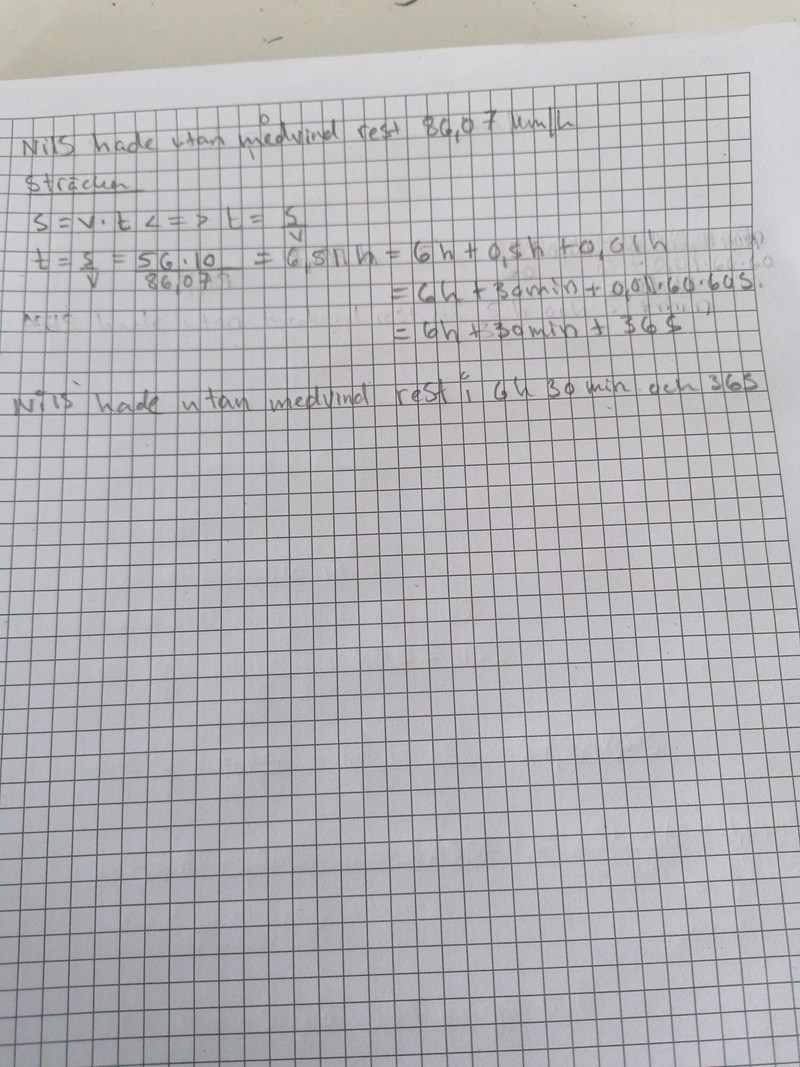 Nils hade utan medvind rest 86,07 km/h
Sträckan
s = v · t <=> t = s/v
t = s/v = 56·10/86,07 = 6,51 h = 6h + 0,5h + 0,01h
= 6h + 30min + 0,01·60·60s.
= 6h + 30min + 36s
Nils hade utan medvind rest i 6h 30 min och 36s